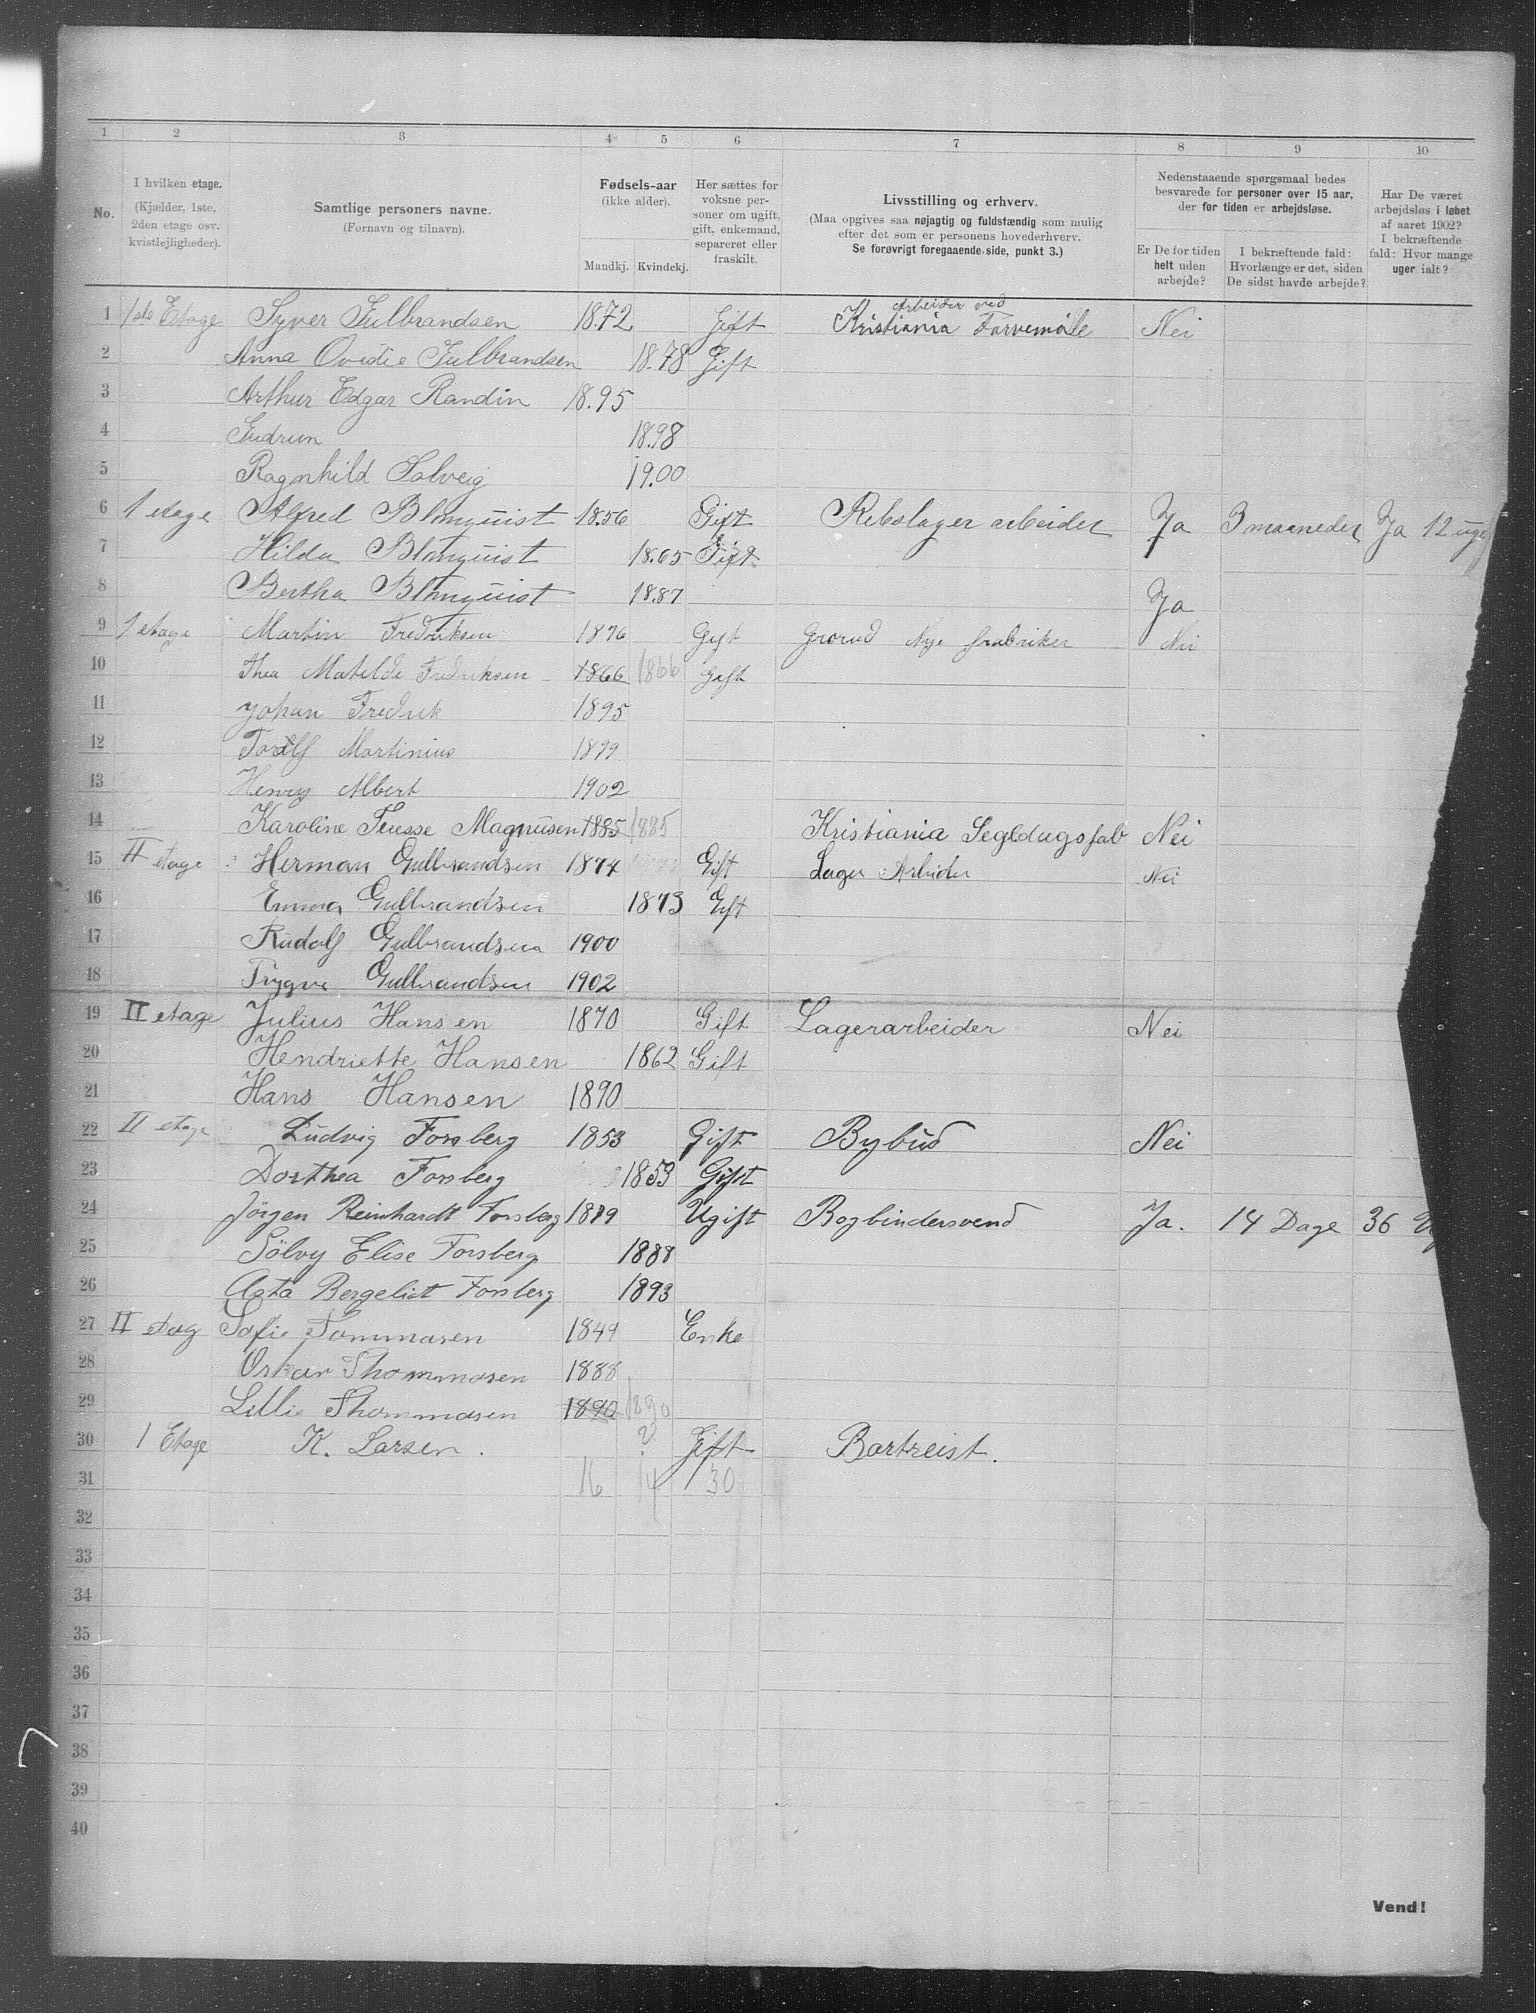 1 2 3 4 5 6 7 8 9 10
No.
I hvilken etage.
(Kjælder, 1ste,
2den etage osv.
kvistlejligheder).
Samtlige personers navne.
(Fornavn og tilnavn).
Fødsels-aar
(ikke alder).
Mandkj. Kvindekj.
Her sættes for
voksne per-
soner om ugift,
gift, enkemand,
separeret eller
fraskilt.
Livsstilling og erhverv.
(Maa opgives saa nøjagtig og fuldstændig som mulig
efter det som er personens hovederhverv.
Se forøvrigt foregaaende side, punkt 3.)
Nedenstaaende spørgsmaal bedes
besvarede for personer over 15 aar,
der for tiden er arbejdsløse.
Er De for tiden
helt uden
arbejde?
I bekræftende fald:
Hvorlænge er det, siden
De sidst havde arbejde?
Har De været
arbejdsløs i løbet
af aaret 1902?
I bekræftende
fald: Hvor mange
uger ialt?
Arbeider ved
1 1ste Etage Syver Gulbrandsen 1872 Gift Kristiania Farvemölle Nei
2 Anna Ovidie Gulbrandsen 18.78 Gift
3 Arthur Edgar Randin 18.95
4 Gudrun 18.98
5 Ragnhild Solveig 19.00
6 1 etage Alfred Blomquist 18.56 Gift Rebslager arbeider Ja 3 maaneder Ja 12 uge
7 Hilda Blomquist 18.65 Gift
8 Bertha Blomquist 18.87 Ja
9 1 etage Martin Fredriksen 1876 Gift Grorud Nye fabriker Nei
10 Thea Matilde Fredriksen 1866 1866 gift
11 Johan Fredrik 1895
12 Toralf Martinius 1899
13 Henry Albert 1902
14 Karoline Magnusen 1885 1885 Kristiania Segldugsfab Nei
15 II etage Herman Gulbrandsen 1874 Gift Lager Arbeider Nei
16 Emma Gulbrandsen 1873 Gift
17 Rudolf Gulbrandsen 1900
18 Trygve Gulbrandsen 1902
19 II etage Julius Hansen 1870 Gift Lagerarbeider Nei
20 Hendriette Hansen 1862 Gift
21 Hans Hansen 1890
22 II etage Ludvig Forsberg 1853 Gift Bybud Nei
23 Dorthea Forsberg 1853 Gift
24 Jörgen Reinhardt Forsberg 1879 Ugift Bogbindersvend Ja. 14 Dage 36
25 Sölvy Elise Forsberg 1888
26 Asta Bergeliot Forsberg 1893
27 II etag Sofie Tommasen 1849 Enke
28 Oskar Thommasen 1888
29 Lilli Thommasen 1890 1890
30 1 Etage K. Larsen. ? Gift Bortreist.
31 16 14 30
32
33
34
35
36
37
38
39
40
Vend!